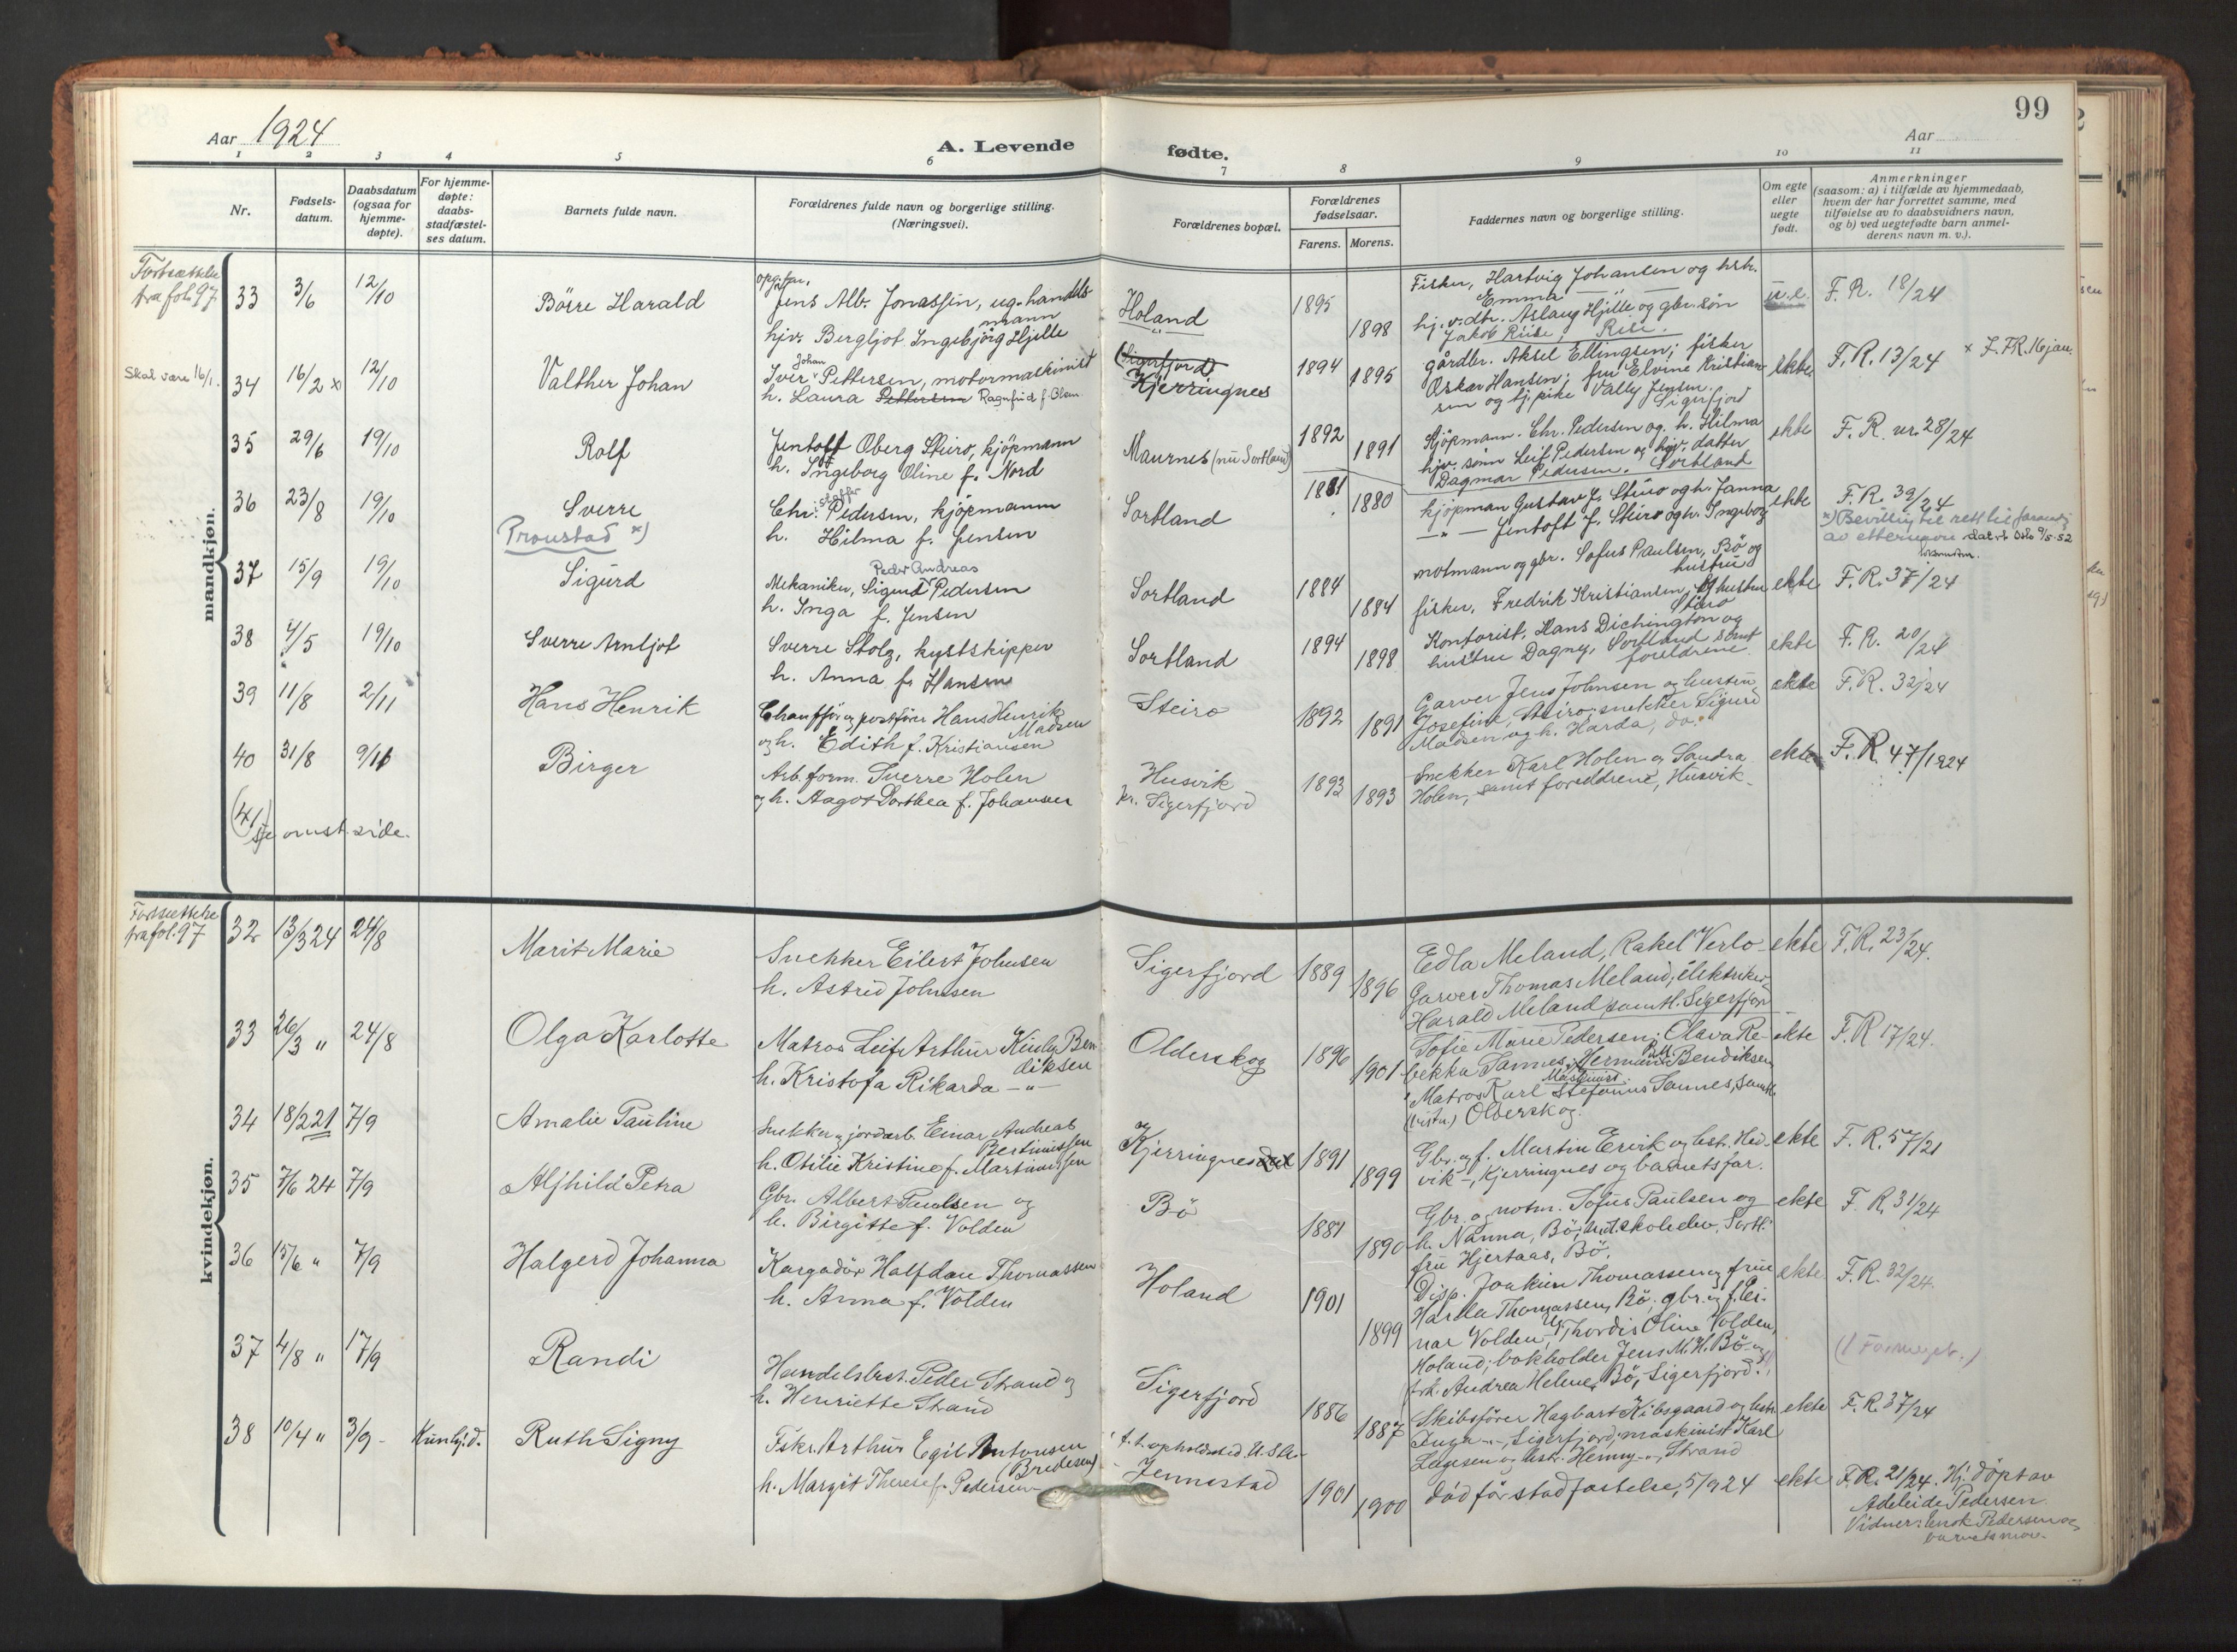 99
Aar 1924
A. Levende
fødte.
Aar
1 2 3 4 5 6 7 8 9 10 11
Nr.
Fødsels-
datum.
Daabsdatum
(ogsaa for
hjemme-
døpte).
For hjemme-
døpte:
daabs-
stadfæstel-
ses datum.
Barnets fulde navn.
Forældrenes fulde navn og borgerlige stilling.
(Næringsvei).
Forældrenes bopæl.
Forældrenes
fødselsaar.
Farens. Morens.
Faddernes navn og borgerlige stilling.
Om egte
eller
uegte
født.
Anmerkninger
(saasom: a) i tilfælde av hjemmedaab,
hvem der har forrettet samme, med
tilføielse av to daabsvidners navn,
og b) ved uegtefødte barn anmel-
derens navn m. v.).
mandkjøn.
Fortsættelse
fra fol. 97
33 3/6 12/10 Börre Harald
Jens Alb. Jonassen, ug. handels-
mann
hjv. Bergljot Ingebjörg Hjelle
Holand
1895 1898
Fisker, Hartvig Johansen og hstr.
Emma
hj. v. dtr. Aslaug Hjelle og gbr. sön
Jakob Riise, Rise.
u.e. F. R. 18/24
Skal være 16/1.
34 16/2 x 12/10 Valther Johan
Johan
Iver Pettersen, motormaskinist
h. Laura Pettersen Ragnfrid f. Olsen
(Sigerfjord)
Kjerringnes
1894 1895
gårdbr. Aksel Ellingsen; fisker
Oskar Hansen; fru Elvine Kristian-
sen og tj. pike Vally Jensen.
Sigerfjord
ekte F. R. 13/24 x F. FR. 16 jan.
35 29/6 19/10 Rolf
Jentoft Oberg Steiro, kjöpmann
h. Ingeborg Oline f. Nord
Maurnes (nu Sortland)
1892 1891
Kjöpmann. Chr. Pedersen og h. Hilma
hjv. sönn Leif Pedersen og hjv. datter
Dagmar Pedersen. Sortland
ekte F. R. nr. 28/24
36 23/8 19/10 Sverre
Pronstad x)
Chr. Pedersen, kjöpmann
h. Hilma f. Jensen
Sortland
1881 1880
kjöpman Gustav J. Steiro og h. Janna
-"- Jentoft f. Steiro og h. Ingeborg
ekte F. R. 39/24
x) Bevilling til rett til forandr.
av etternavn dat. Oslo 9/5-52
37 15/9 19/10 Sigurd
Peder Andreas
Mekaniker, Sigurd Pedersen
h. Inga f. Jensen
Sortland
1884 1884
notmann og gbr. Sofus Paulsen, Bö og
hustru
fisker, Fredrik Kristiansen og hustru
Steiro
ekte F. R. 37/24
38 4/5 19/10 Sverre Arnljot
Sverre Stolz, kystskipper
h. Anna f. Hansen
Sortland
1894 1898
Kontorist, Hans Dichington og
hustru Dagny, Sortland samt
foreldrene
ekte F. R. 20/24
39 11/8 2/11 Hans Henrik
Chaufför og postförer Hans Henrik
Madsen
og h. Edith f. Kristiansen
Steiro
1892 1891
Garver Jens Johnsen og hustru
Josefine, Steiro; snekker Sigurd
Madsen og h. Harda, do.
ekte F. R. 32/24
40 31/8 9/11 Birger
Arb. form. Sverre Holen
og h. Aagot Dorthea f. Johansen
Husvik
pr. Sigerfjord
1893 1893
Snekker Karl Holen og Sandra
Holen, samt foreldrene, Husvik
ekte F. R. 47/1924
(41)
se omst. side.
kvindekjøn.
Fortsættelse
fra fol. 97
32 13/3 24 24/8 Marit Marie
Snekker Eilert Johnsen
h. Astrid Johnsen
Sigerfjord
1889 1896
Edla Meland, Rakel Verlo
Garver Thomas Meland, elektriker
Harald Meland, samtl. Sigerfjord
ekte F. R. 23/24.
33 26/3 " 24/8 Olga Karlotte
Matros Leif Arthur Kinly Ben
diksen
h. Kristofa Rikarda -"-
Olderskog
1896 1901
Sofie Marie Pedersen, Olava Re-
bekka Sannes, Herman Bendiksen
Matros Karl Stefanus Sannes, samtl.
Olderskog.
ekte F. R 17/24.
34 18/2 21 7/9 Amalie Pauline
Snekker og jordarb. Einar Andreas
Bertinussen
h. Otilie Kristine f. Martinussen
Kjerringnes
1891 1899
Gbr. og f. Martin Ervik og hstr. Hed-
vik -"-, Kjerringnes og barnets far.
ekte F. R. 57/21
35 7/6 24 7/9 Aljhild Petra
Gbr. Albert Paulsen og
h. Birgitte f. Volden
Bö
1881 1890
Gbr. og notm. Sofus Paulsen og
h. Nanna, Bö,
fru Hjertaas, Bö.
ekte F. R. 31/24
36 15/6 " 7/9 Halgerd Johanna
Kargadör Halfdan Thomassen
h. Anna f. Volden
Holand
1901 1899
Disp. Joakim Thomassen og fru
Harda Thomassen, Bö, gbr. og f. Ei-
nar Volden, Thordis Oline Volden,
Holand; bokholder Jens M. H. Bö og
frk. Andrea Helene Bö, Sigerfjord.
ekte F. R. 32/24.
37 4/8 " 17/9 Randi
Handelsbest. Peder Strand og
h. Henriette Strand
Sigerfjord
1886 1887
Skibsförer Hagbart Kibsgaard og hstr.
Inga -"-, Sigerfjord; maskinist Karl
Legesen og hstr. Henny -"-, Strand
ekte F. R. 37/24
38 10/4 " 3/9 - Kun hj. d. Ruth Signy
Fskr. Arthur Egil Antonsen
(Bredesen)
h. Margit Therese f. Pedersen
f. t. opholdssted U. S. A.
Jennestad
1901 1900
död för stadfæstelse, 5/9 24
ekte F. R. 21/24. Hj. döpt av
Adeleide Pedersen
Vidner: Enok Pedersen og
barnets mor.